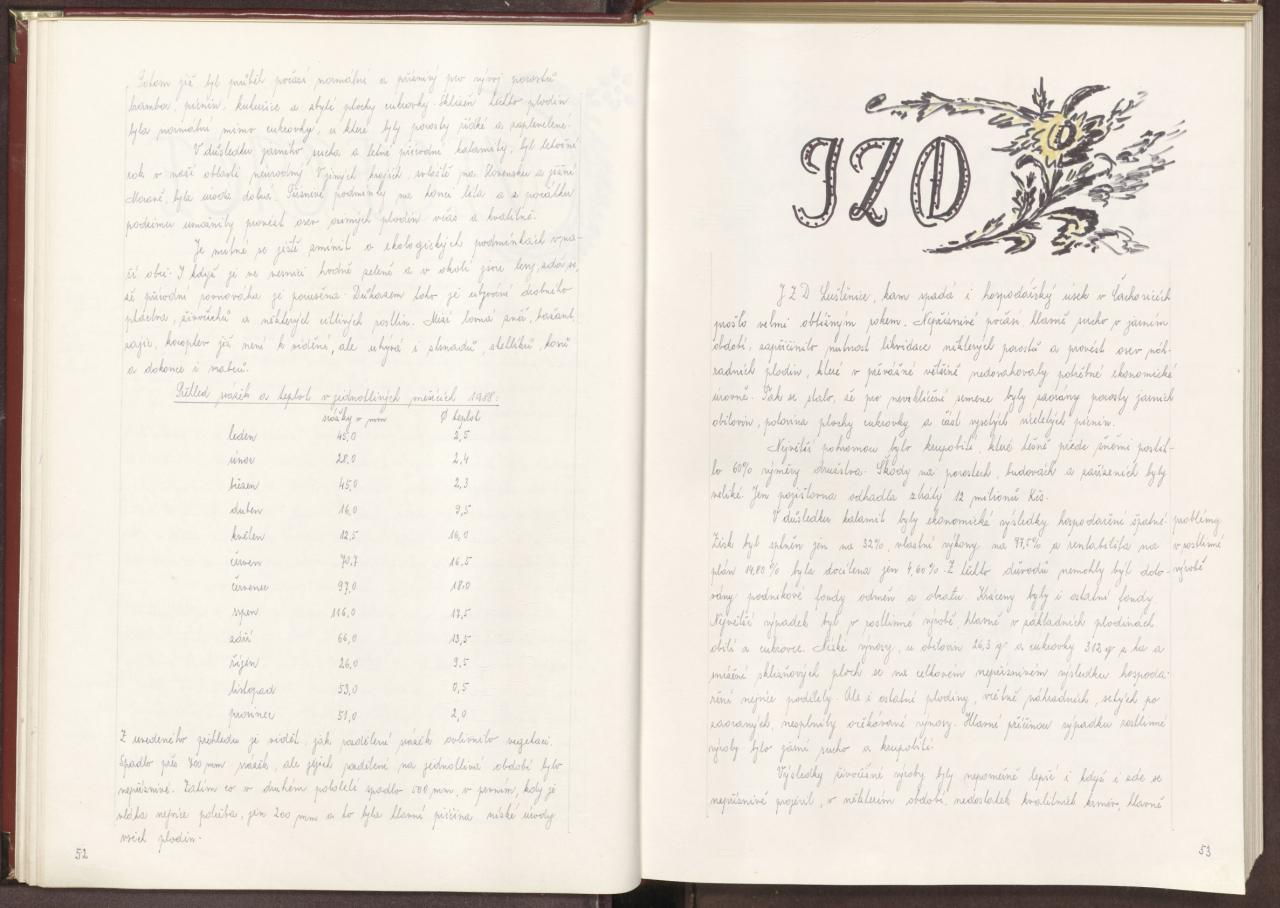 Potom již byl průběh počasí normální a příznivý pro vývoj porostů
brambor, pícnin, kukuřice a zbylé plochy cukrovky. Sklizeň těchto plodin
byla normální mimo cukrovky, u které byly porosty řídké a zaplevelené.
V důsledku jarního sucha a letní přírodní kalamity, byl letošní
rok v naší oblasti neúrodný. V jiných krajích, zvláště na Slovensku a jižní
Moravě, byla úroda dobrá. Příznivé podmínky na konci léta a z počátku
podzimu umožnily provést osev ozimných plodin včas a kvalitně.
Je nutné se ještě zmínit o ekologických podmínkách v na-
ší obci. I když je ve vesnici hodně zeleně a v okolí jsou lesy, zdá se,
že přírodní rovnováha je porušena. Důkazem toho je ubývání drobného
ptactva, živočichů a některých citlivých rostlin. Mizí lovná zvěř, bažant,
zajíc, koroptev již není k vidění, ale ubývá i strnadů, stehlíků, kosů
a dokonce i vrabců.
Přehled srážek a teplot v jednotlivých měsících 1988:
srážky v mm Ø teplot
leden 45,0 2,5
únor 28,0 2,4
březen 45,0 2,3
duben 16,0 9,5
květen 12,5 16,0
červen 70,7 16,5
červenec 97,0 18,0
srpen 116,0 17,5
září 66,0 13,5
říjen 26,0 9,5
listopad 59,0 0,5
prosinec 51,0 2,0
Z uvedeného přehledu je vidět, jak rozdělení srážek ovlivnilo vegetaci.
Spadlo přes 700 mm srážek, ale jejich rozdělení na jednotlivá období bylo
nepříznivé. Zatím co v druhém pololetí spadlo 500 mm, v prvním, kdy je
vláha nejvíce potřeba, jen 200 mm a to byla hlavní příčina nízké úrody
všech plodin.
52
JZD
JZD Luštěnice, kam spadá i hospodářský úsek v Čachovicích
prošlo velmi obtížným rokem. Nepříznivé počasí hlavně sucho v jarním
období, zapříčinilo nutnost likvidace některých porostů a provést osev náh-
radních plodin, které v převážné většině nedosahovaly potřebné ekonomické
úrovně. Tak se stalo, že pro nevzklíčení semene byly zaorány porosty jarních
obilovin, polovina plochy cukrovky, a část vysetých víceletých pícnin.
Největší pohromou bylo krupobití, které těsně přede žněmi posti-
lo 60% výměry družstva. Škody na porostech, budovách a zařízeních byly
veliké. Jen pojišťovna odhadla ztráty 12 milionů Kčs.
V důsledku kalamit byly ekonomické výsledky hospodaření špatné.
Zisk byl splněn jen na 32%, vlastní výkony na 97,5% a rentabilita na
plán 14,80% byla docílena jen 4,60%. Z těchto důvodů nemohly být doto-
vány podnikové fondy odměn a obratu. Kráceny byly i ostatní fondy.
problémy
v rostlinné
výrobě
Největší výpadek byl v rostlinné výrobě, hlavně v základních plodinách
obilí a cukrovce. Nízké výnosy, u obilovin 26,3 q a cukrovky 312 q z ha a
snížení sklizňových ploch se na celkovém nepříznivém výsledku hospoda-
ření nejvíce podílely. Ale i ostatní plodiny, včetně náhradních, setých po
zaoraných, nesplnily očekávané výnosy. Hlavní příčinou výpadku rostlinné
výroby bylo jarní sucho a krupobití.
Výsledky živočišné výroby byly nepoměrně lepší i když i zde se
nepříznivě projevil, v některém období, nedostatek kvalitních krmiv, hlavně
53